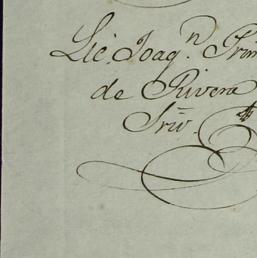 Lic. Joaqn. Trin
de Rivera
Srio